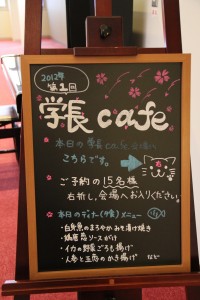 2012年
第1回
学長cafe
本日の学長cafe会場へ
こちらです。
右
ご予約の15名様
右折し、会場へお入りください。
本日のディナー(夕食)メニュー
・白身魚のまろやかみそ漬け焼き
・鶏唐ソースがけ
・イカの野菜ごろも揚げ
・人参と豆腐のかき揚げ など